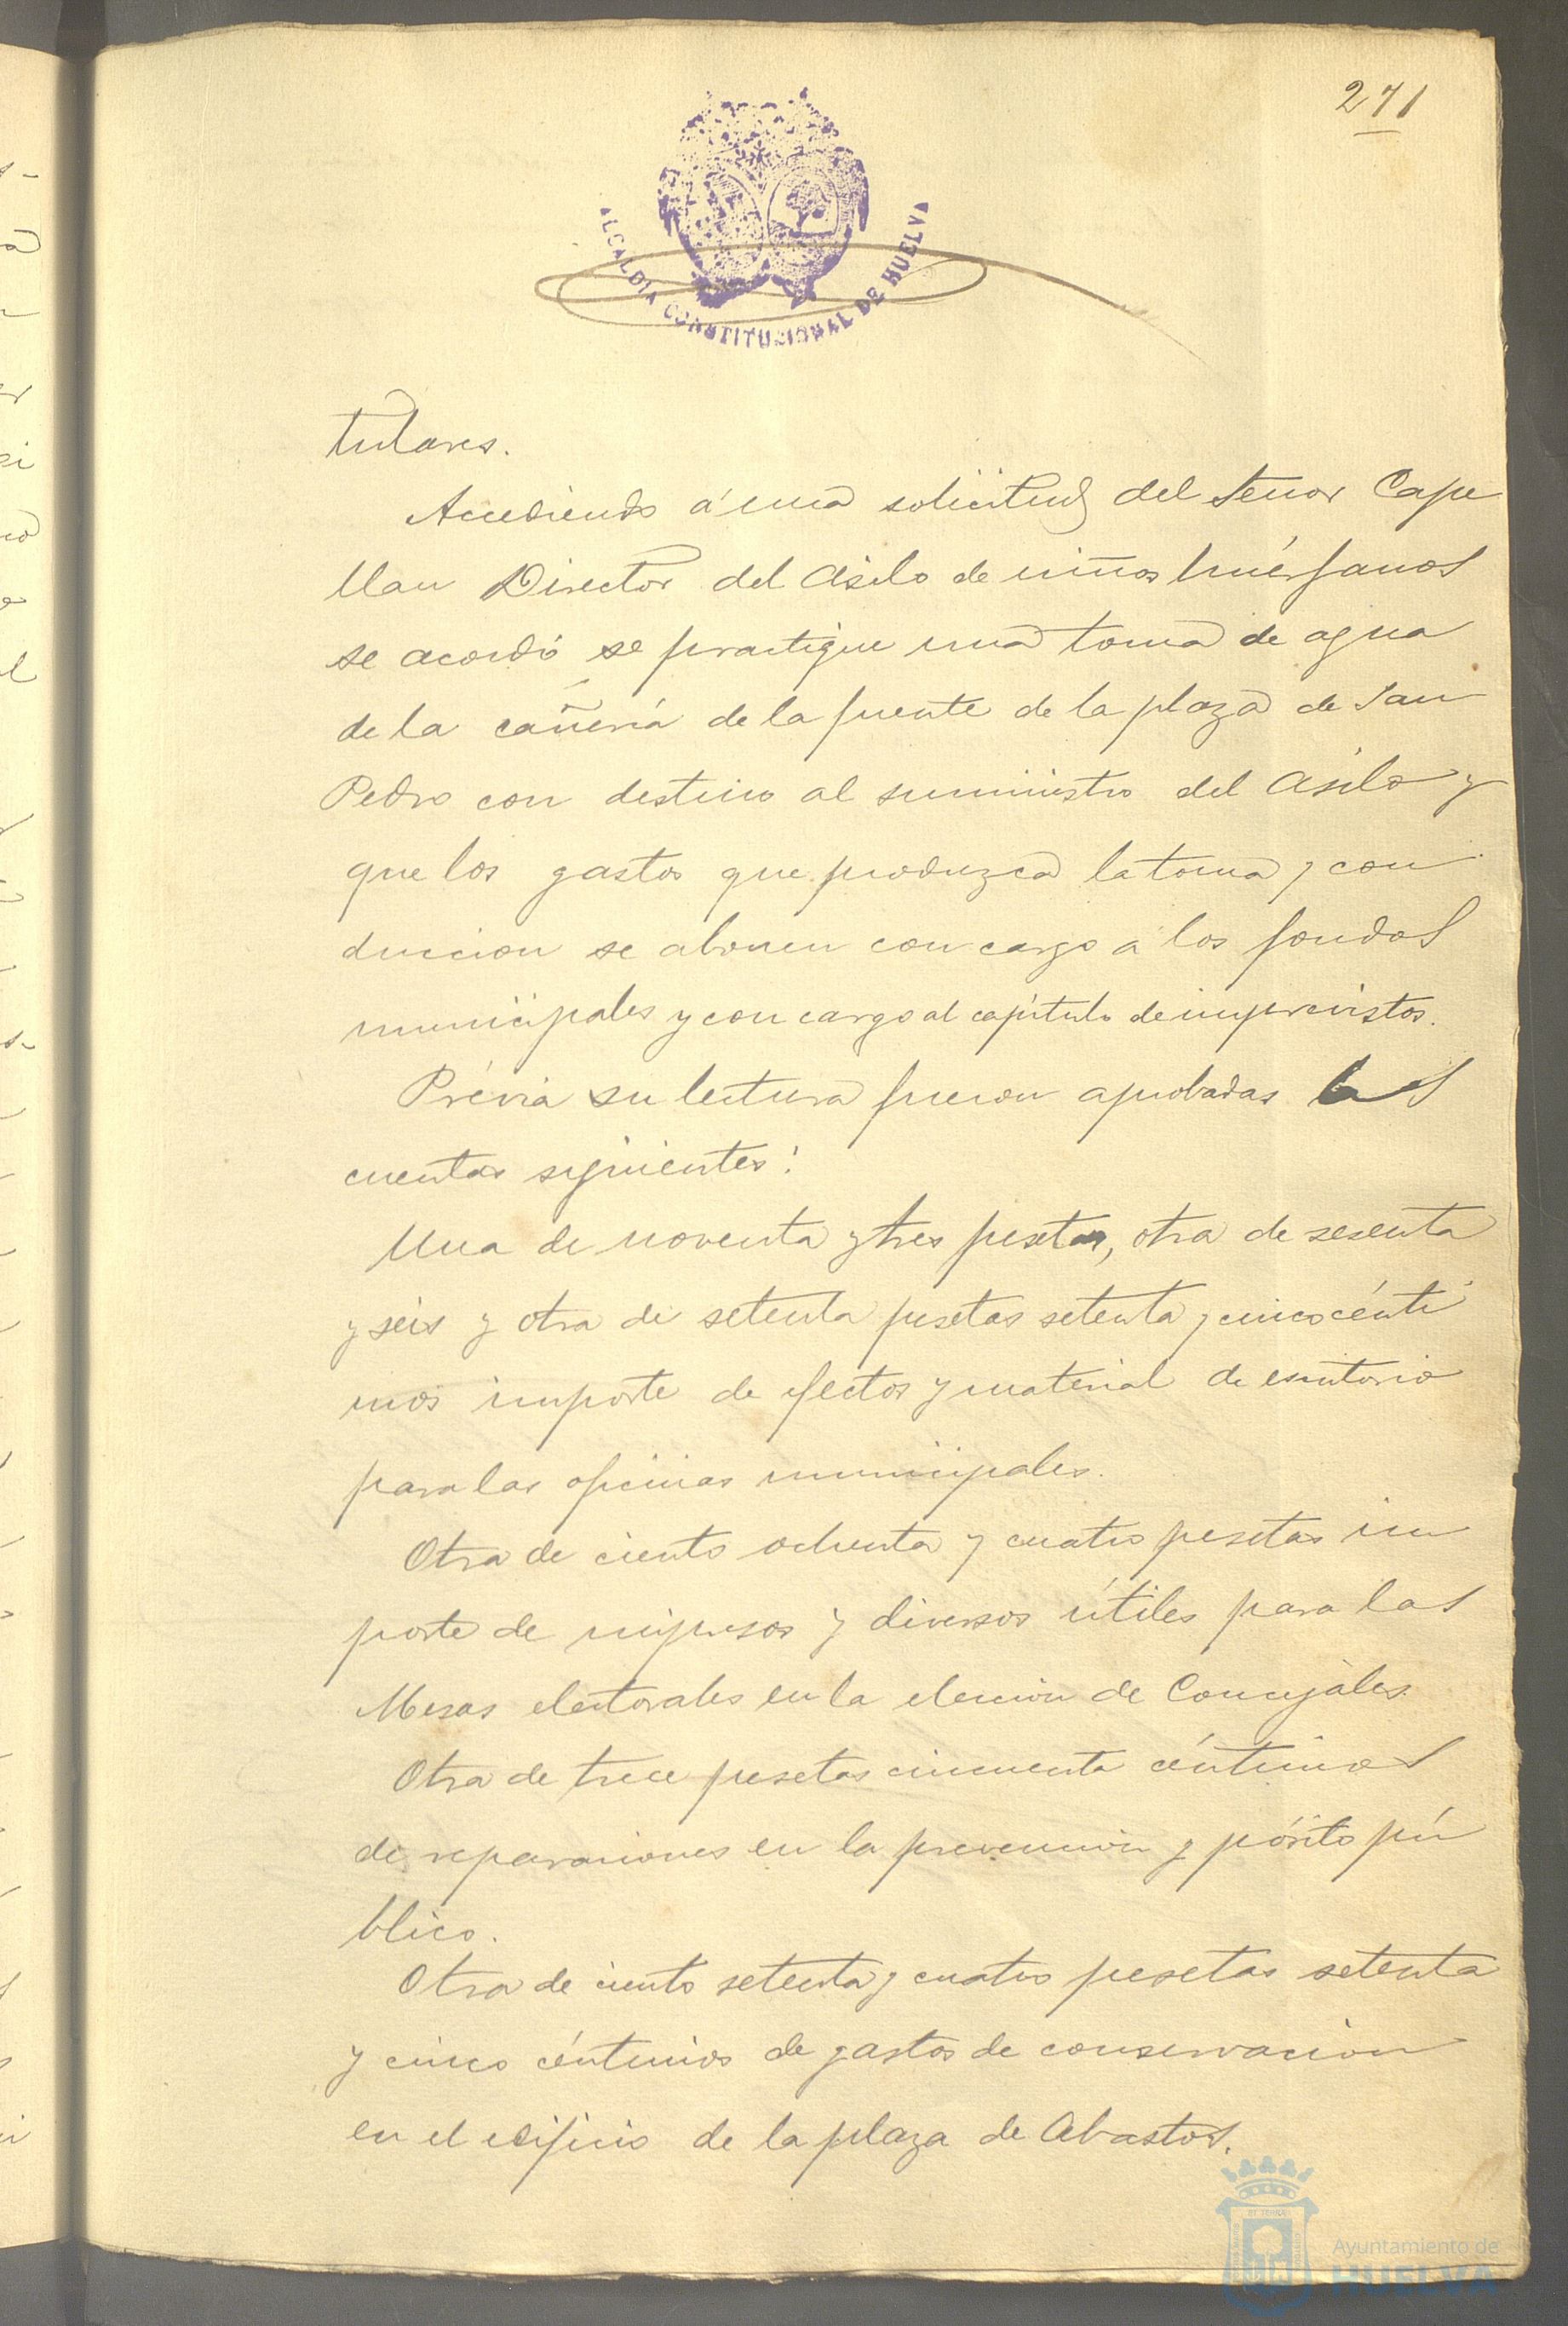 271
ALCALDIA CONSTITUCIONAL DE HUELVA
tulares.
Accediendo á una solicitud del Señor Cape
llan Director del Asilo de niños huérfanos
se acordó se practique una toma de agua
de la cañería de la fuente de la plaza de San
Pedro con destino al suministro del Asilo y
que los gastos que produzca la toma y con
duccion se abonen con cargo á los fondos
municipales y con cargo al capítulo de imprevistos.
Prévia su lectura fueron aprobadas las
cuentas siguientes:
Una de noventa y tres pesetas, otra de sesenta
y seis y otra de setenta pesetas setenta y cinco cénti
mos importe de efectos y material de escritorio
para las oficinas municipales.
Otra de ciento ochenta y cuatro pesetas im
porte de impresos y diversos útiles para las
Mesas electorales en la eleccion de Concejales.
Otra de trece pesetas cincuenta céntimos
de reparaciones en la prevencion y pósito pú
blico.
Otra de ciento setenta y cuatro pesetas setenta
y cinco céntimos de gastos de conservacion
en el edificio de la plaza de Abastos.
Ayuntamiento de
HUELVA